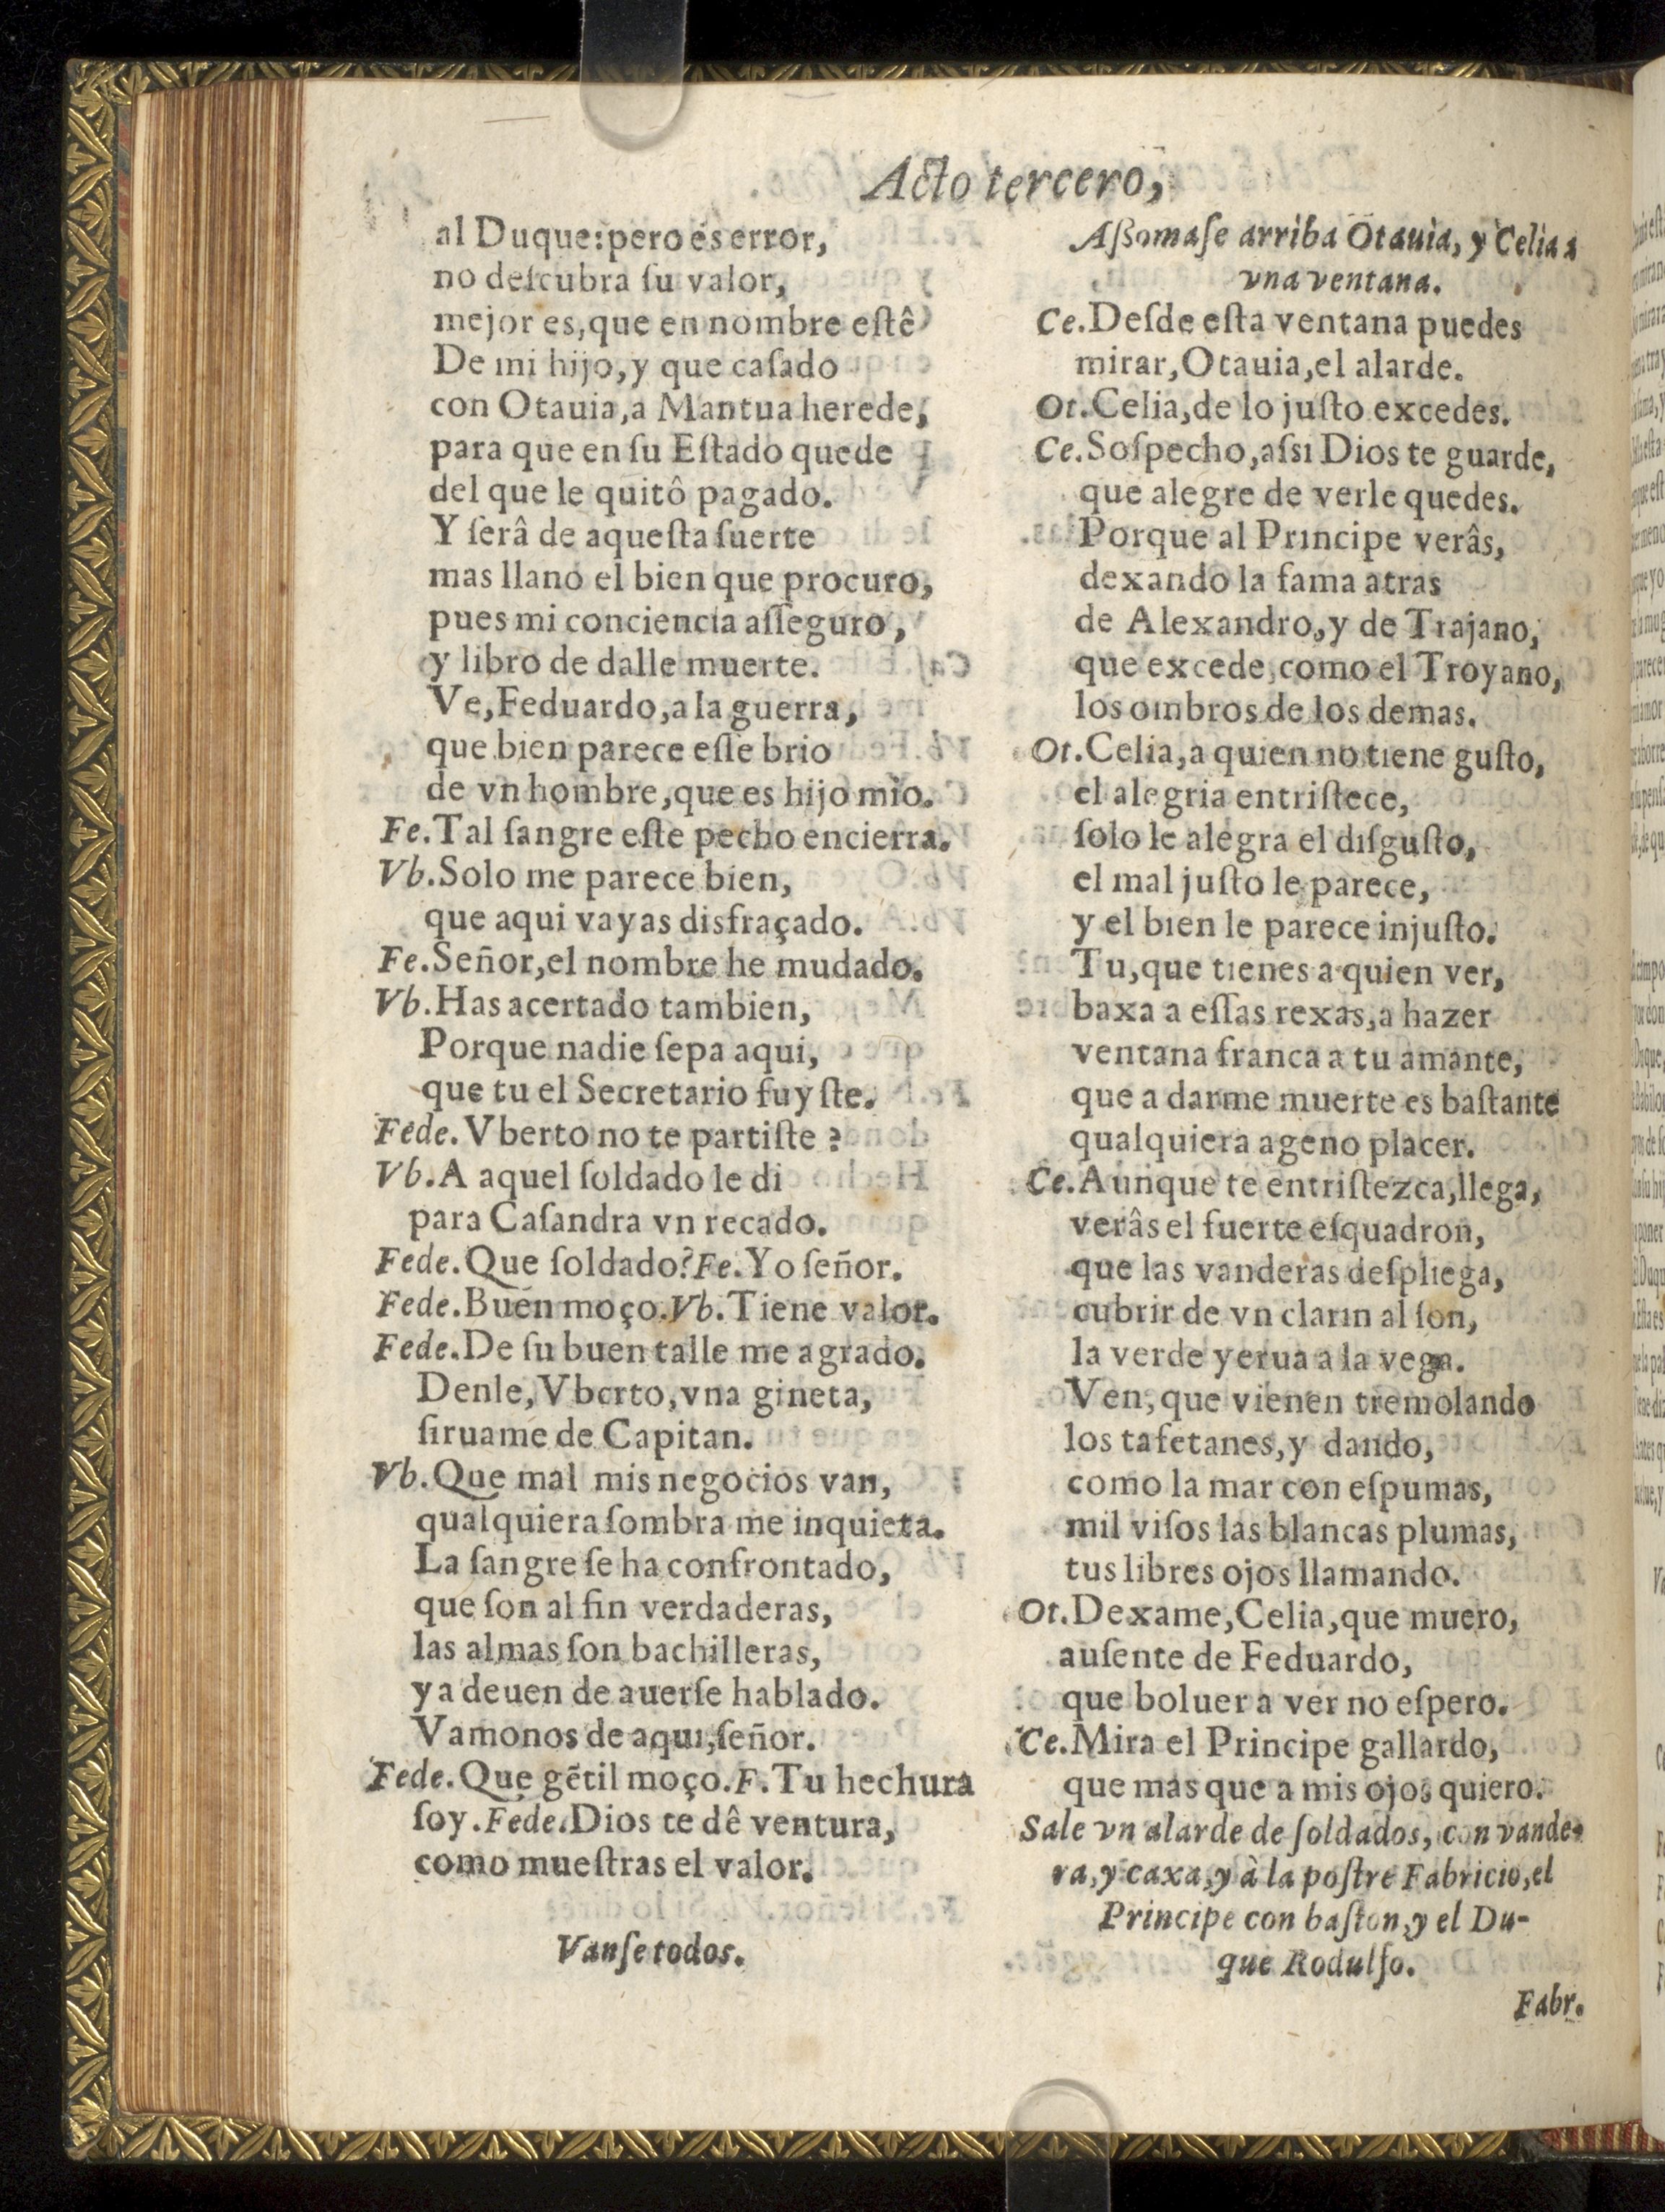 Acto tercero,
al Duque: pero es error,
no descubra su valor,
mejor es, que en nombre estê
De mi hijo, y que casado
con Otauia, a Mantua herede,
para que en su Estado quede
del que le quitô pagado.
Y serâ de aquesta suerte
mas llano el bien que procuro,
pues mi conciencia asseguro,
y libro de dalle muerte.
Ve, Feduardo, a la guerra,
que bien parece esse brio
de vn hombre, que es hijo mio.
Fe. Tal sangre este pecho encierra.
Vb. Solo me parece bien,
que aqui vayas disfraçado.
Fe. Señor, el nombre he mudado.
Vb. Has acertado tambien,
Porque nadie sepa aqui,
que tu el Secretario fuyste.
Fede. Vberto no te partiste?
Vb. A aquel soldado le di
para Casandra vn recado.
Fede. Que soldado? Fe. Yo señor.
Fede. Buen moço. Vb. Tiene valor.
Fede. De su buen talle me agrado.
Denle, Vberto, vna gineta,
siruame de Capitan.
Vb. Que mal mis negocios van,
qualquiera sombra me inquieta.
La sangre se ha confrontado,
que son al fin verdaderas,
las almas son bachilleras,
ya deuen de auerse hablado.
Vamonos de aqui, señor.
Fede. Que gẽtil moço. F. Tu hechura
soy. Fede. Dios te dê ventura,
como muestras el valor.
Vanse todos.
Assomase arriba Otauia, y Celia a
vna ventana.
Ce. Desde esta ventana puedes
mirar, Otauia, el alarde.
Ot. Celia, de lo justo excedes.
Ce. Sospecho, assi Dios te guarde,
que alegre de verle quedes.
Porque al Principe verâs,
dexando la fama atras
de Alexandro, y de Trajano,
que excede, como el Troyano,
los ombros de los demas.
Ot. Celia, a quien no tiene gusto,
el alegria entristece,
solo le alegra el disgusto,
el mal justo le parece,
y el bien le parece injusto.
Tu, que tienes a quien ver,
baxa a essas rexas, a hazer
ventana franca a tu amante,
que a darme muerte es bastante
qualquiera ageno placer.
Ce. Aunque te entristezca, llega,
verâs el fuerte esquadron,
que las vanderas despliega,
cubrir de vn clarin al son,
la verde yerua a la vega.
Ven, que vienen tremolando
los tafetanes, y dando,
como la mar con espumas,
mil visos las blancas plumas,
tus libres ojos llamando.
Ot. Dexame, Celia, que muero,
ausente de Feduardo,
que boluer a ver no espero.
Ce. Mira el Principe gallardo,
que mas que a mis ojos quiero.
Sale vn alarde de soldados, con vande-
ra, y caxa, y à la postre Fabricio, el
Principe con baston, y el Du-
que Rodulfo.
Fabr.